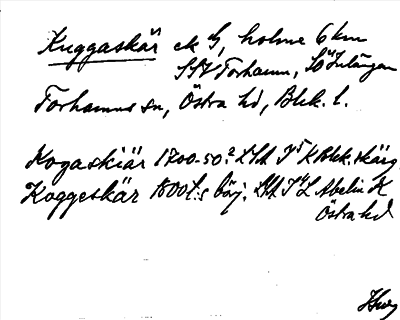 Kuggaskär ek S, holme 6 km
SSV Torhamn, SO Inlängan
Torhamns sn, Östra hd, Blek. l.
Kogaskiär 1700-50? LSA Blek. skärg.
Koggeskär 1800 t:s börj. LSA Abelin K
Östra hd